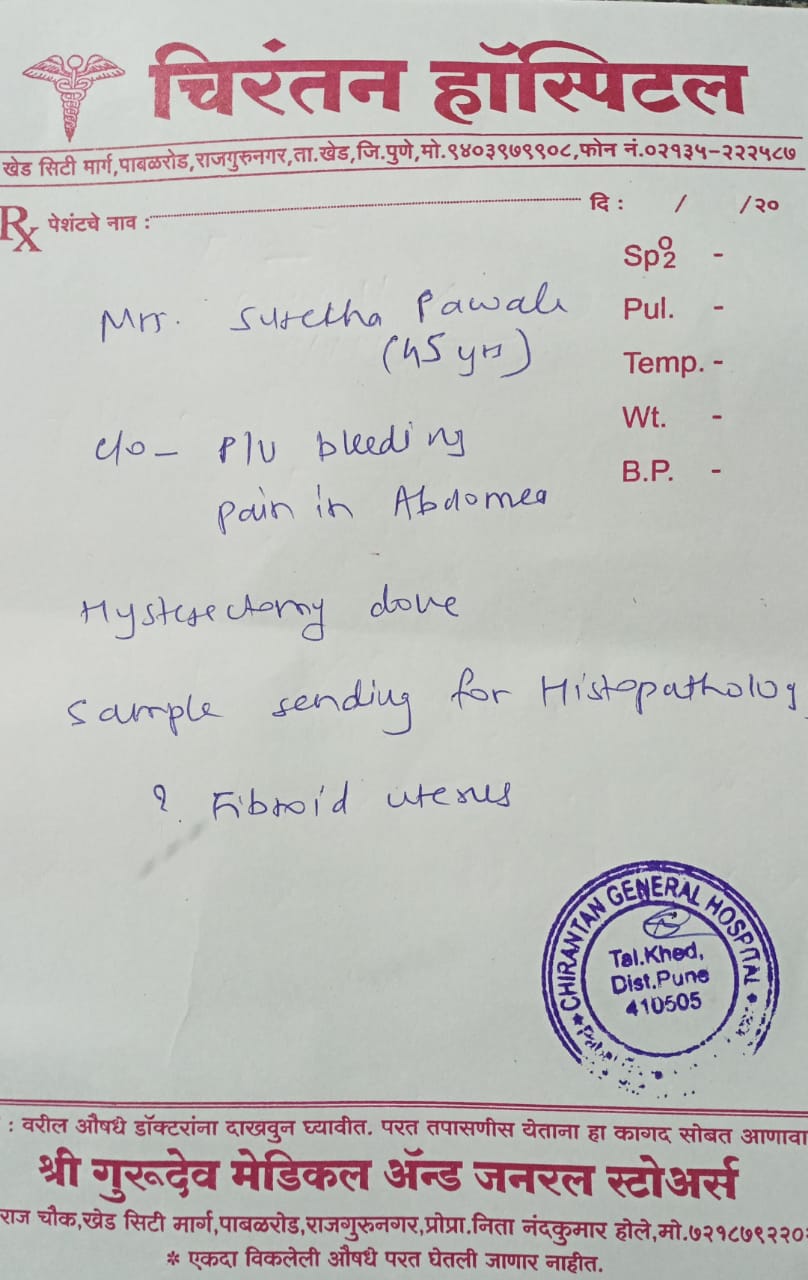 चिरंतन हॉस्पिटल
खेड सिटी मार्ग,पाबळरोड,राजगुरुनगर,ता.खेड,जि.पुणे,मो.९४०३९७९९०८,फोन नं.०२१३५-२२२५८७
Rx पेशंटचे नाव : दि : / /२०
SpO2 -
Mrs. Surekha Pawale
Pul. -
(45 yrs)
Temp. -
Wt. -
c/o - P/V bleeding
B.P. -
pain in Abdomen
Hysterectomy done
sample sending for Histopatholog
? Fibroid uterus
CHIRANTAN GENERAL HOSPITAL
Tal.Khed,
Dist.Pune
410505
: वरील औषधे डॉक्टरांना दाखवुन घ्यावीत. परत तपासणीस येताना हा कागद सोबत आणावा
श्री गुरूदेव मेडिकल ॲन्ड जनरल स्टोअर्स
राज चौक,खेड सिटी मार्ग,पाबळरोड,राजगुरुनगर,प्रोप्रा.निता नंदकुमार होले,मो.७२१८७९२२०
* एकदा विकलेली औषधे परत घेतली जाणार नाहीत.